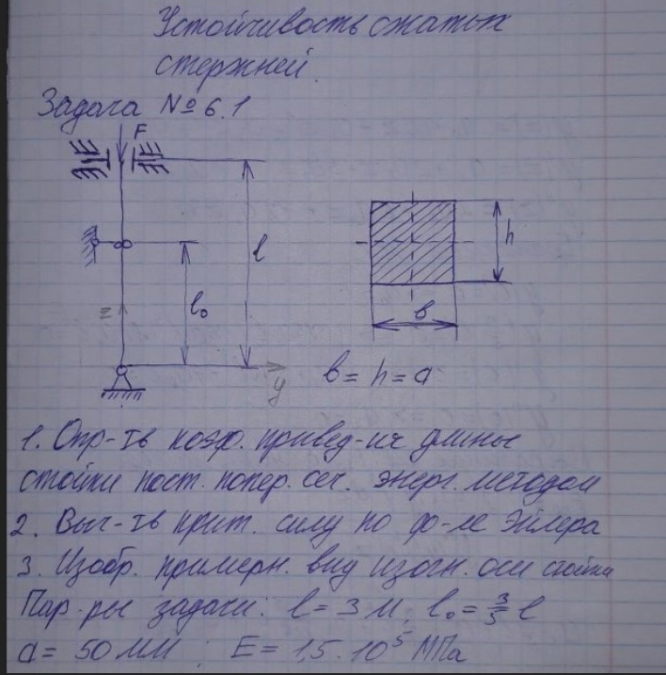 Устойчивость сжатых
стержней.
Задача № 6.1
F
l
h
l₀
z
в
y
в = h = a
1. Опр-ть коэф. привед-ия длины
стойки пост. попер. сеч. энерг. методом
2. Выч-ть крит. силу по ф-ле Эйлера
3. Изобр. примерн. вид изогн. оси стойки
Пар-ры задачи: l = 3 м; l₀ = 3/5 l
a = 50 мм ; E = 1,5 · 10⁵ МПа